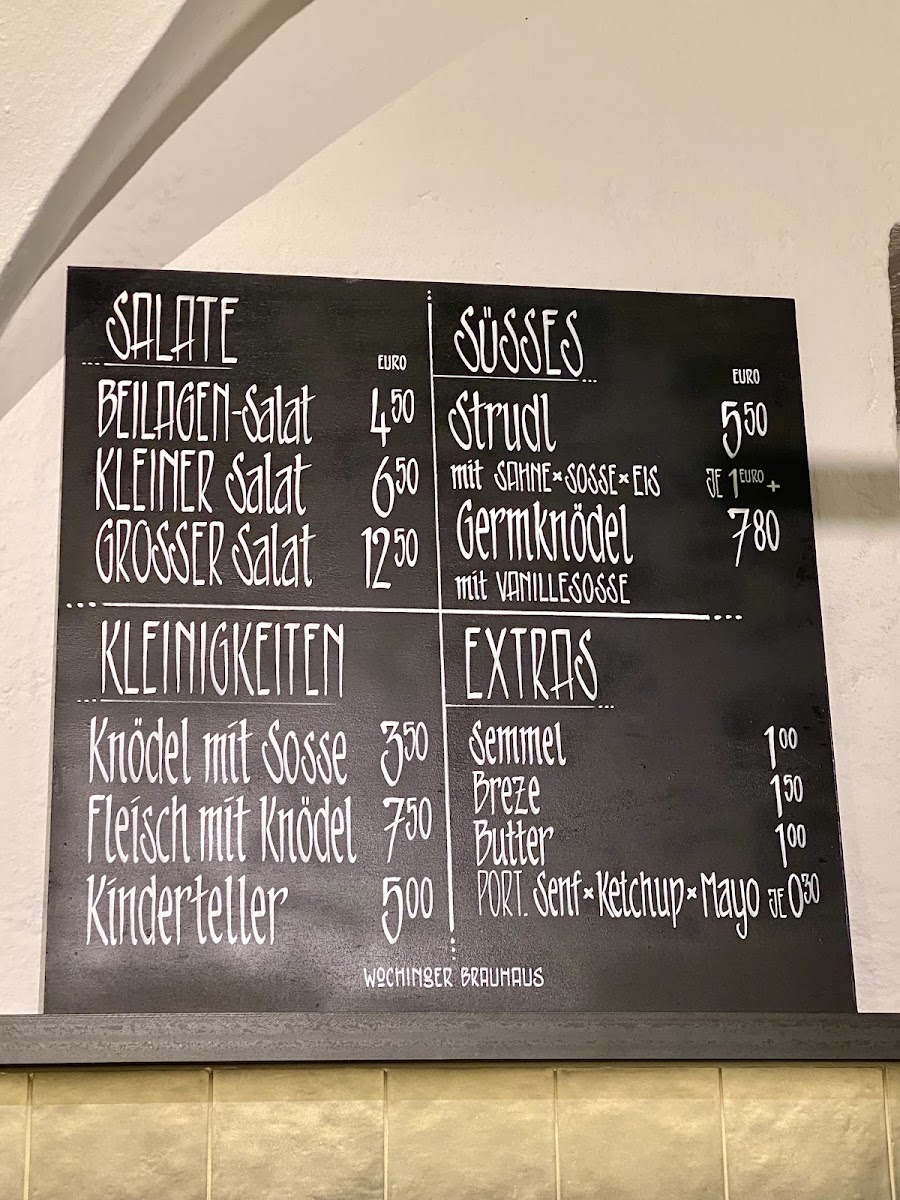 SALATE
EURO
BEILAGEN-Salat 4.50
KLEINER Salat 6.50
GROSSER Salat 12.50
SÜSSES
EURO
Strudl 5.50
mit SAHNE×SOSSE×EIS JE 1 EURO +
Germknödel 7.80
mit VANILLESOSSE
KLEINIGKEITEN
Knödel mit Sosse 3.50
Fleisch mit Knödel 7.50
Kinderteller 5.00
EXTRAS
Semmel 1.00
Breze 1.50
Butter 1.00
PORT. Senf×Ketchup×Mayo JE 0.30
WOCHINGER BRAUHAUS